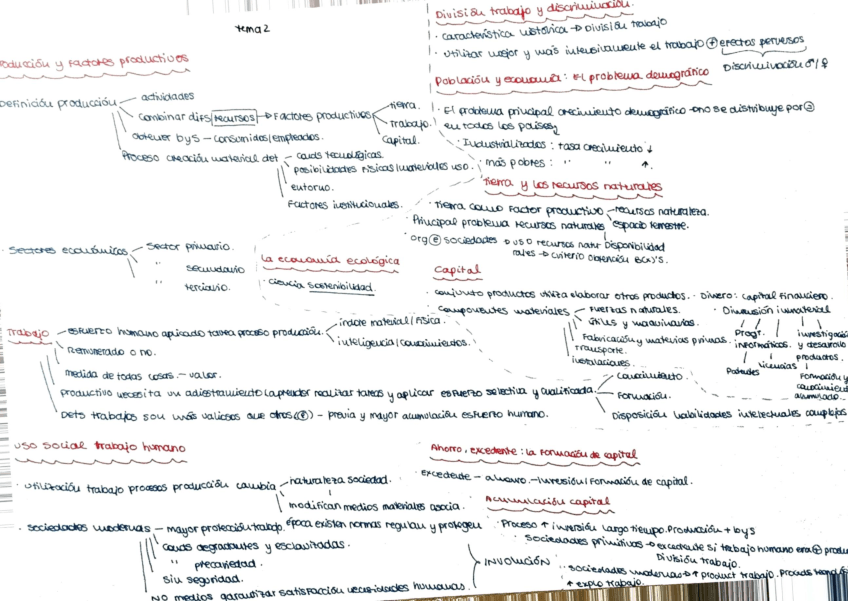 tema 2
Producción y factores productivos
Definición producción
actividades
Combinar difs recursos → Factores productivos
tierra.
Trabajo.
Capital.
obtener byS – Consumidos/empleados.
Proceso creación material det
conds tecnológicas.
posibilidades físicas/materiales uso.
entorno.
Factores institucionales.
· Sectores económicos
Sector primario.
" secundario
" terciario.
La economía ecológica
· Ciencia sostenibilidad.
División trabajo y discriminación.
· Característica histórica → División trabajo
· Utilizar mejor y más intensivamente el trabajo + efectos perversos
Discriminación ♂/♀
Población y economía: El problema demográfico
· El problema principal crecimiento demográfico → no se distribuye por =
en todos los países
· Industrializados: tasa crecimiento ↓
· más pobres: " " ↑.
Tierra y los recursos naturales
· Tierra como factor productivo
recursos naturaleza.
espacio terrestre.
· Principal problema recursos naturales
· org sociedades → uso recursos natur Disponibilidad
→ criterio obtención
Capital
· Conjunto productos utiliza elaborar otros productos. · Dinero: capital financiero.
· Componentes materiales
Fuerzas naturales.
útiles y maquinarias.
Fabricación y materias primas.
Transporte.
instalaciones.
· Dimensión inmaterial
Progr. informáticos.
Patentes
Licencias
investigación y desarrollo productos.
Formación y conocimiento acumulado.
Trabajo
esfuerzo humano aplicado tarea proceso producción.
índole material/física.
inteligencia/conocimientos.
Remunerado o no.
medida de todas cosas. – valor.
productivo necesita un adiestramiento (aprender realizar tareas y aplicar esfuerzo selectiva y cualificada.
Conocimiento.
Formación.
Disposición habilidades intelectuales complejas
Deto trabajos son más valiosos que otros – previa y mayor acumulación esfuerzo humano.
Uso social trabajo humano
· Utilización trabajo procesos producción cambia
naturaleza sociedad.
modifican medios materiales asocia.
· Sociedades modernas – mayor protección trabajo, época existen normas regulan y protegen
Conds degradantes y esclavizadas.
" precariedad.
Sin seguridad.
No medios garantizar satisfacción necesidades humanas.
INVOLUCIÓN
Ahorro, excedente: la formación de capital
· excedente – ahorro. – Inversión/formación de capital.
Acumulación capital
· Proceso ↑ inversión largo tiempo. Producción + byS
· Sociedades primitivas → excedente si trabajo humano era +
División trabajo.
· Sociedades modernas → ↑ product trabajo.
↑ explo trabajo.